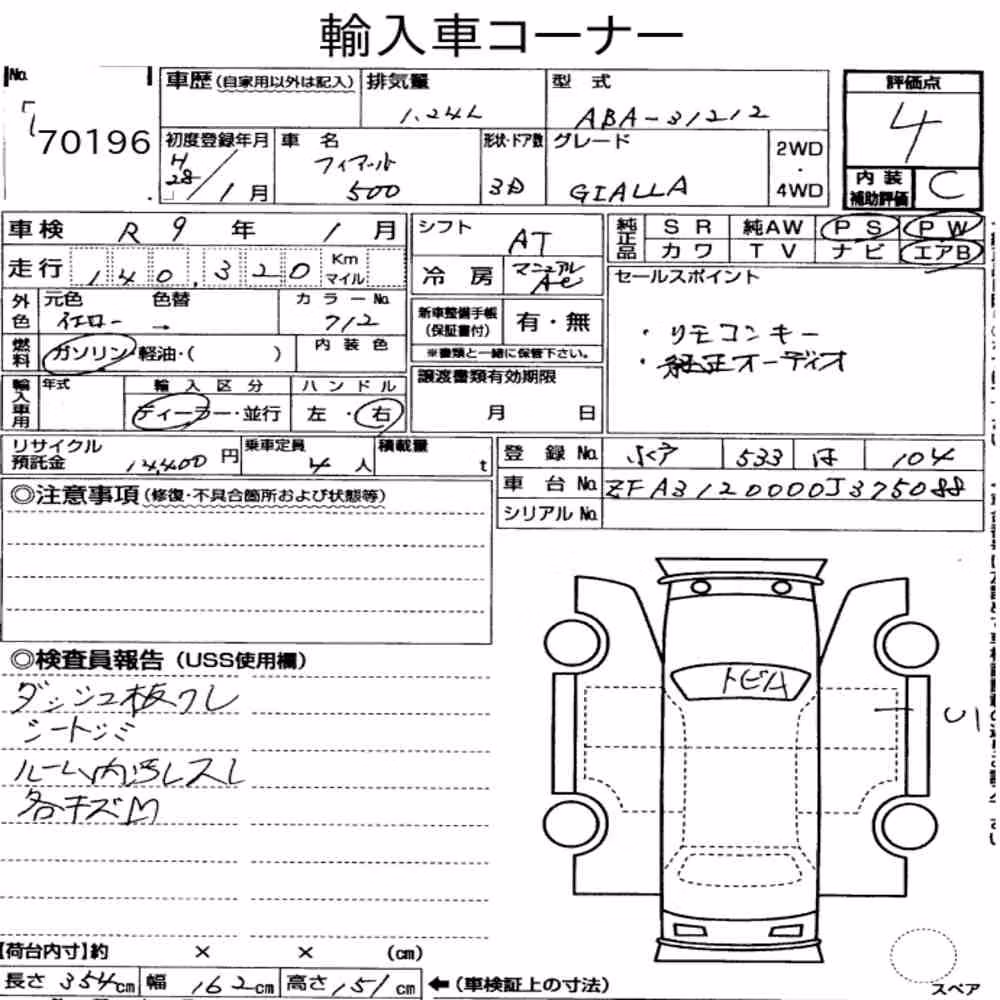 輸入車コーナー
No.
70196
車歴(自家用以外は記入)
排気量
1.24L
型式
ABA-31212
評価点
4
初度登録年月
H28/1月
車名
フィアット
500
形状・ドア数
3D
グレード
GIALLA
2WD
・
4WD
内装
補助評価
C
車検 R9年 1月
シフト
AT
純正品
SR 純AW PS PW
カワ TV ナビ エアB
走行 140,320 Km
マイル
冷房
マニュアル
Ac
セールスポイント
・リモコンキー
・純正オーディオ
外色
元色 色替 カラーNo.
イエロー → 712
新車整備手帳
(保証書付)
有・無
※書類と一緒に保管下さい。
燃料
ガソリン・軽油・( )
内装色
輸入車用
年式
輸入区分
ディーラー・並行
ハンドル
左・右
譲渡書類有効期限
月 日
リサイクル
預託金 14,400円
乗車定員
4人
積載量
t
登録No. 533 は 104
車台No. ZFA3120000J375088
シリアルNo.
◎注意事項(修復・不具合箇所および状態等)
◎検査員報告(USS使用欄)
ダッシュ板クレ
シートシミ
ルーム内汚レスレ
各キズM
トビA
U1
【荷台内寸】約 × × (cm)
長さ 354cm 幅 162cm 高さ 151cm ←(車検証上の寸法)
スペア